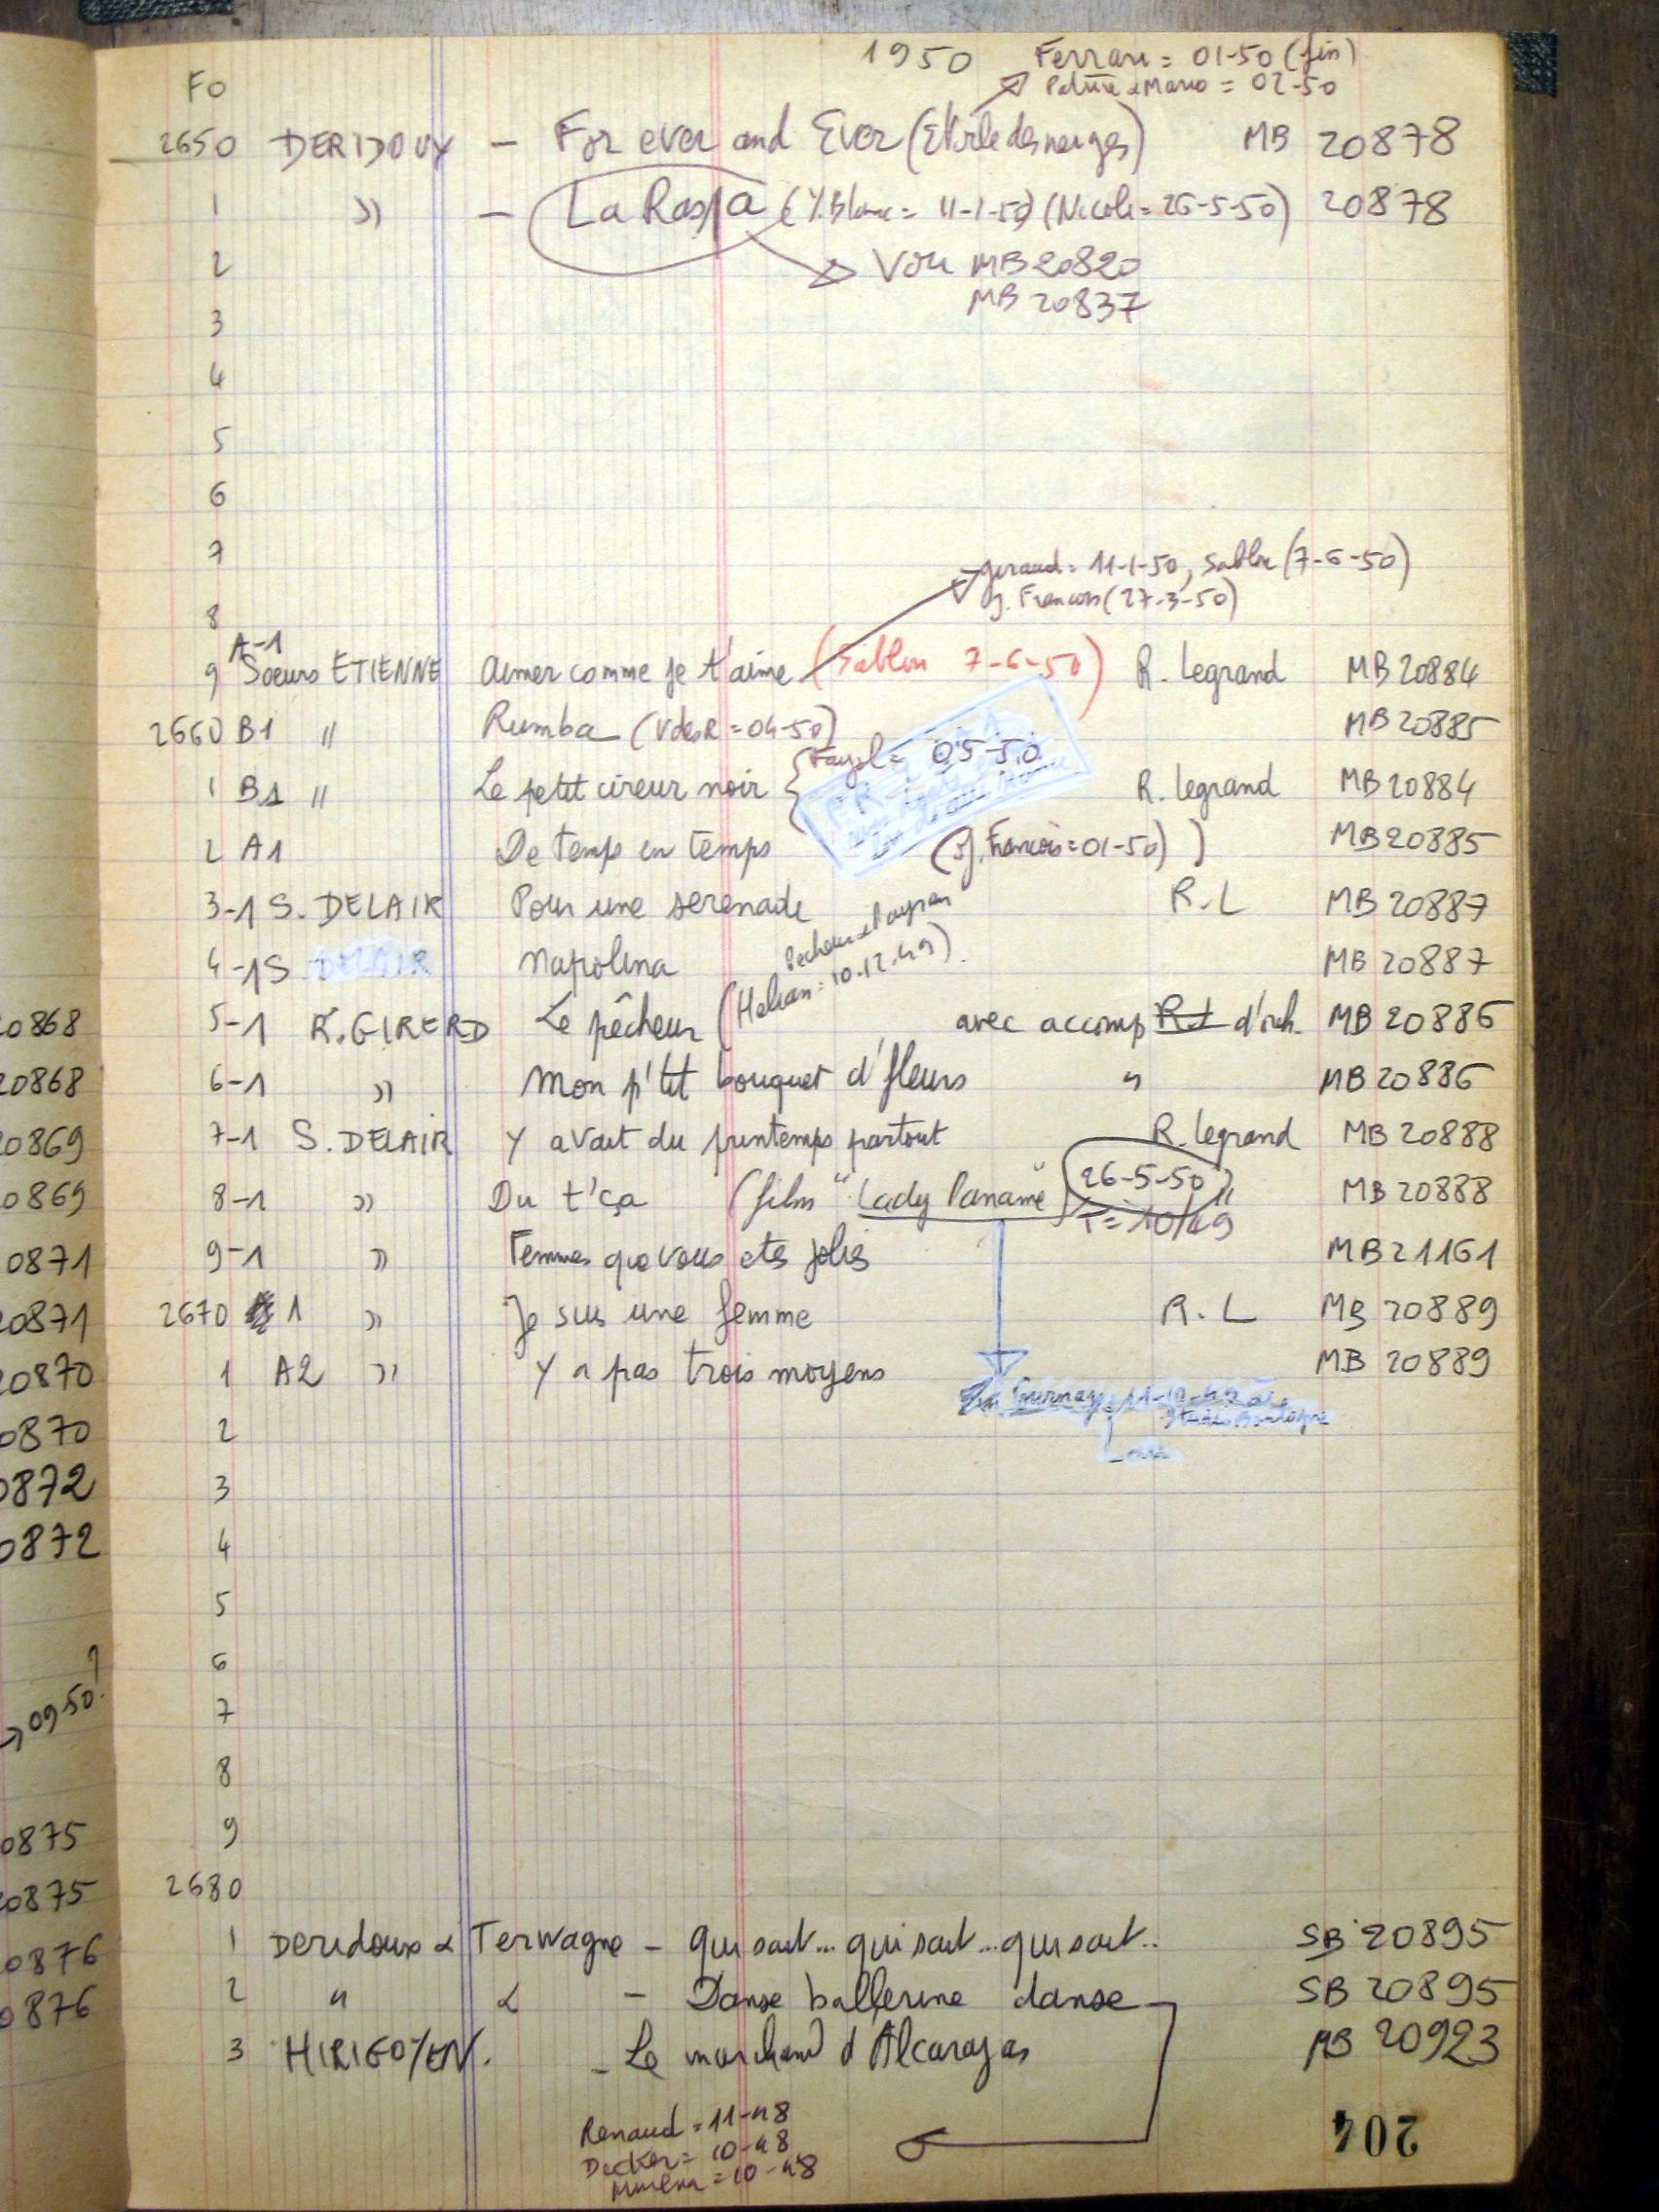 1950 Ferrari = 01-50 (fin)
FO Patrice & Mario = 02-50
2650 DERIDOUX — For ever and Ever (Etoile des neiges) MB 20878
1 " — La Raspa (Y. Blanc = 11-1-50) (Nicoli = 26-5-50) 20878
2 Voir MB 20820
MB 20837
3
4
5
6
7
Giraud = 11-1-50, Sablon (7-6-50)
J. François (27-3-50)
8
A-1
9 Soeurs ETIENNE Aimer comme je t'aime (Sablon 7-6-50) R. Legrand MB 20884
2660 B1 " Rumba (V des R = 04-50) MB 20885
= 05-50
1 B1 " Le petit cireur noir R. Legrand MB 20884
2 A1 De temps en temps (J. François = 01-50) MB 20885
3-1 S. DELAIR Pour une serenade R.L MB 20887
Pecheur & Paysan
4-1 S DELAIR Napolina MB 20887
5-1 R. GIRERD Le pêcheur (Helian = 10.12.49) avec accomp R.L d'orch. MB 20886
6-1 " Mon p'tit bouquet d'fleurs " MB 20886
7-1 S. DELAIR Y avait du printemps partout R. Legrand MB 20888
8-1 " Du t'ça (film "Lady Paname" 26-5-50 " MB 20888
T = 10/49
9-1 " Femmes que vous etes jolies MB 21161
2670 1 " Je suis une femme R.L MB 20889
1 A2 " Y a pas trois moyens MB 20889
2
3
4
5
6
7
8
9
2680
1 Deridoux & Terwagne — qui sait... qui sait... qui sait.. SB 20895
2 " & — Danse ballerine danse SB 20895
3 HIRIGOYEN. — Le marchand d'Alcarazas MB 20923
Renaud = 11-48
Decker = 10-48
= 10-48
204
0868
0868
0869
0869
0871
0871
0870
0870
0872
0872
09-50?
0875
0875
0876
0876